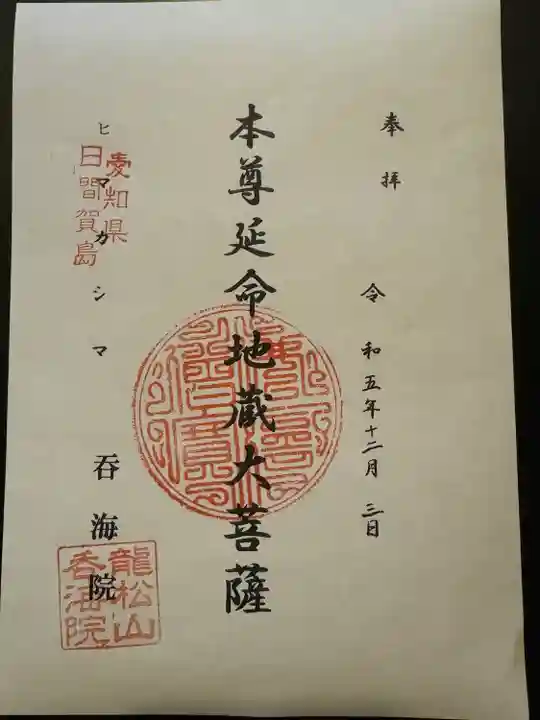 奉拝
令和五年十二月三日
本尊延命地蔵大菩薩
ヒマカシマ 呑海院
愛知県
日間賀島
龍松山
呑海院